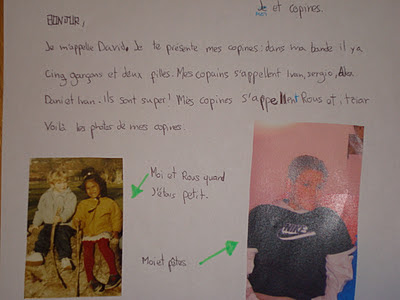 Je et copines.
moi
BONJOUR,
Je m'appelle David. Je te présente mes copines: dans ma bande il ya
Cinq garçons et deux filles. Mes copains s'appellent Ivan, Sergio,
Dani et Ivan. Ils sont super! Mes copines s'appellent Rous et itziar
Voilà les photos de mes copines.
Moi et Rous quand
J'étais petit.
Moi et
NIKE